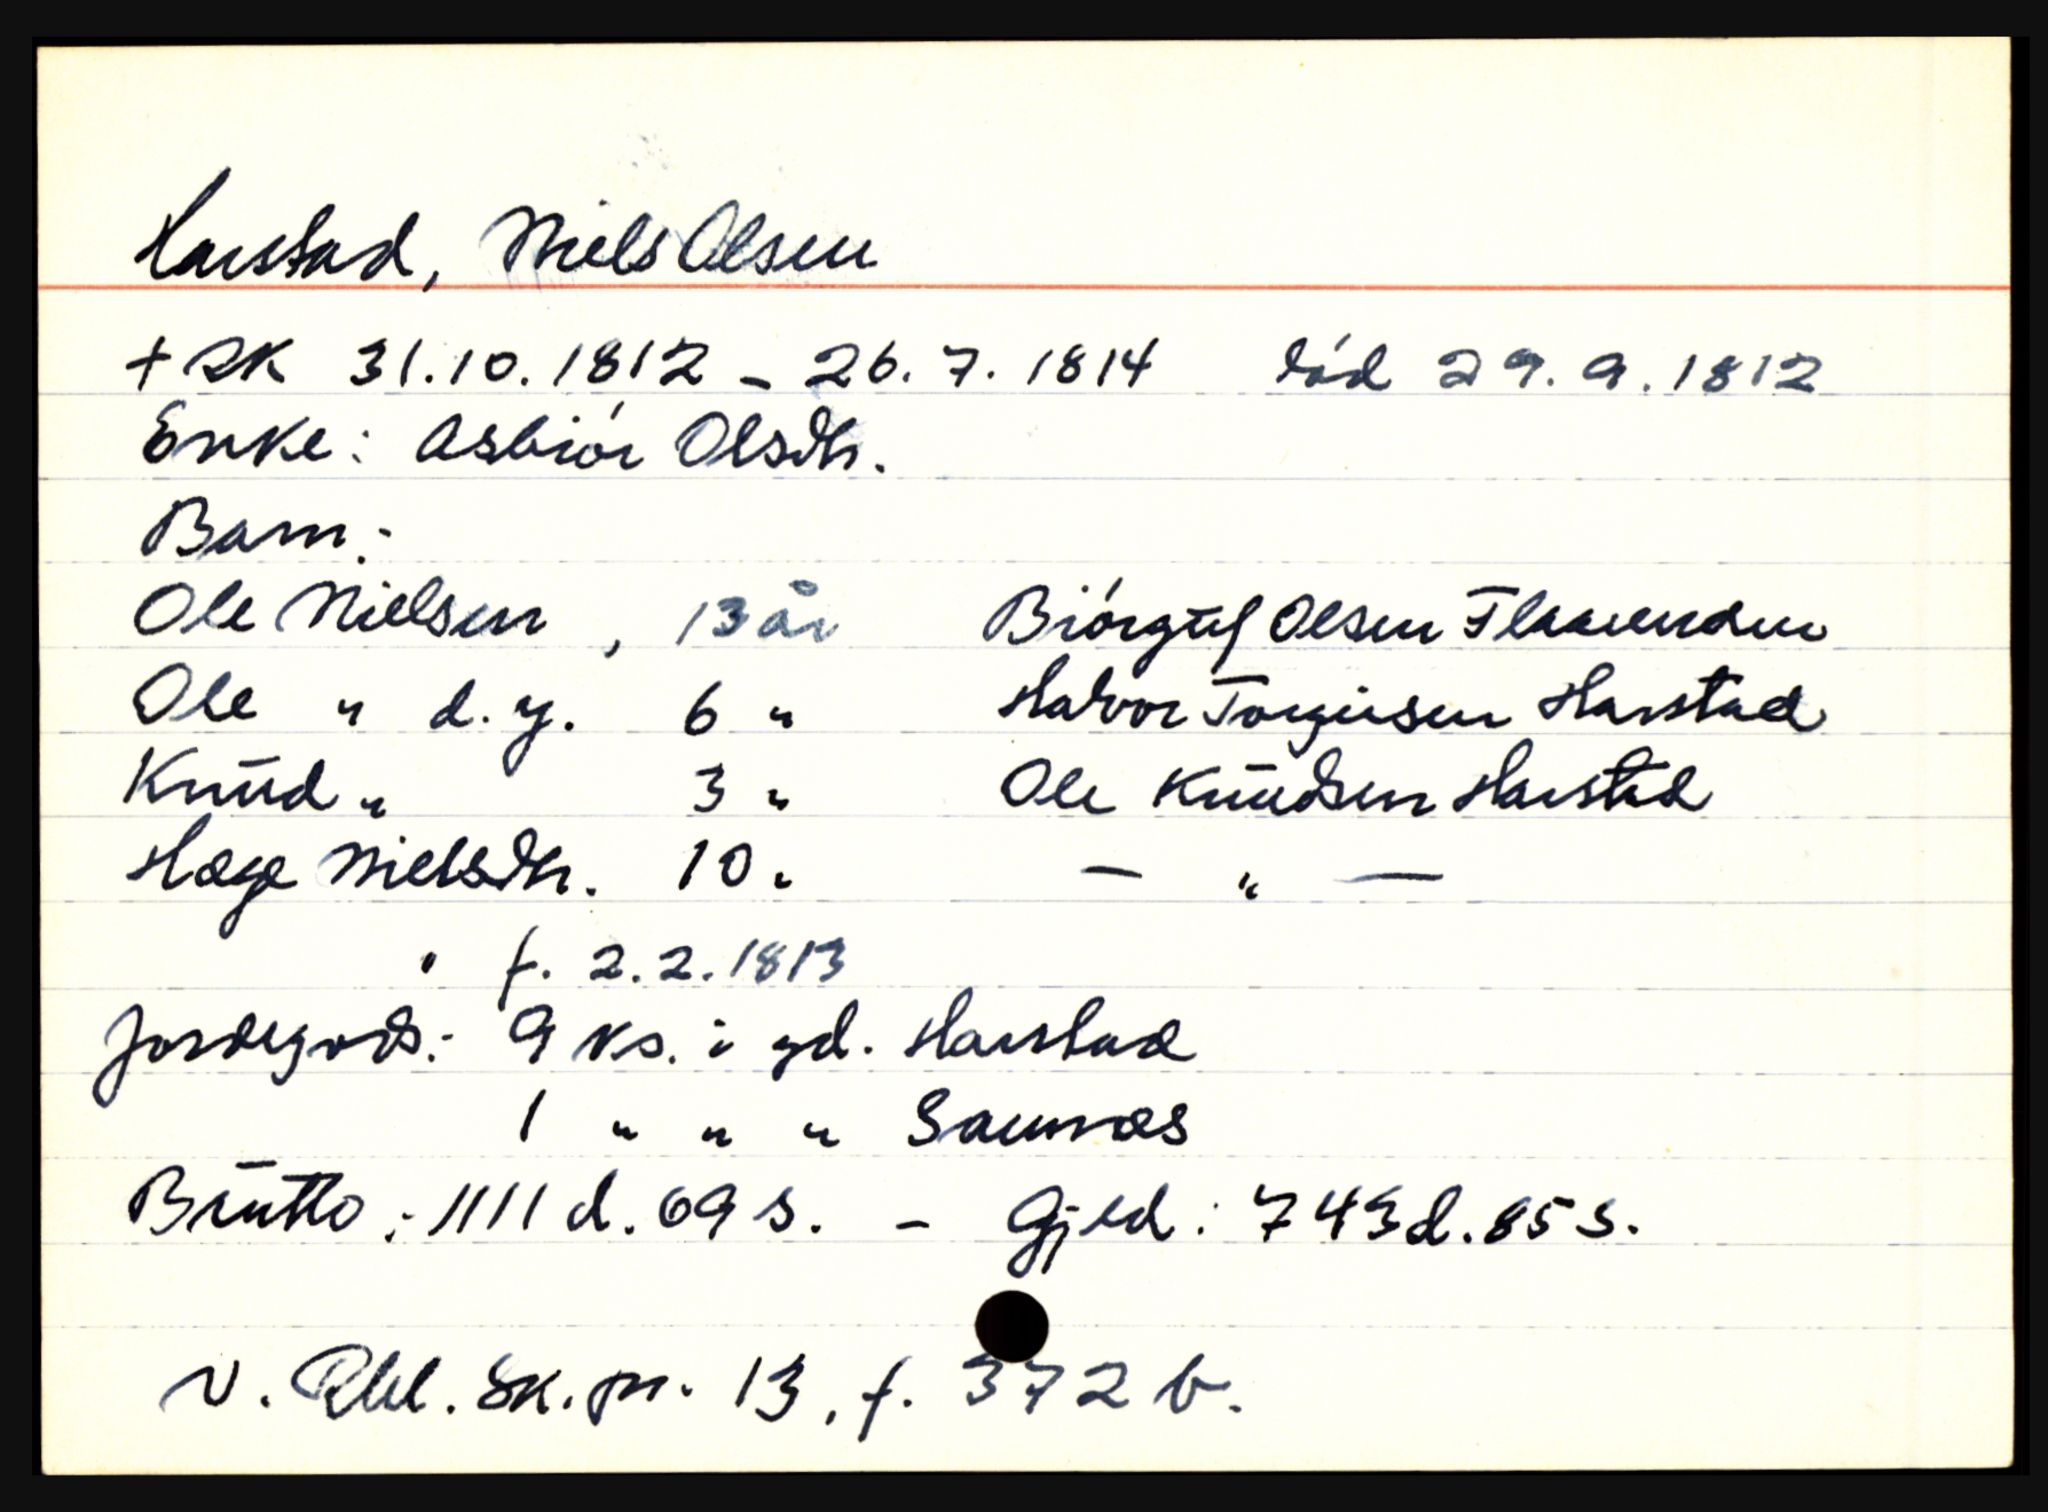 Harstad, Niels Olsen
+ SK 31.10.1812 - 26.7.1814 død 29.9.1812
Enke: Asbiór Olsdtr.
Barn:
Ole Nielsen, 13 år Biórgulf Olsen Flaarenden
Ole " d.y. 6 " Halvor Torgiusen Harstad
Knud " 3 " Ole Knudsen Harstad
Hæge Nielsdtr. 10 " — " —
" f. 2.2.1813
Jordegods: 9 ks. i gd. Harstad
1 " " " Saumæs
Brutto: 1111 d. 69 s. - Gjeld: 743 d. 85 s.
N. Rbl. Sk.pr. 13, f. 372 b.